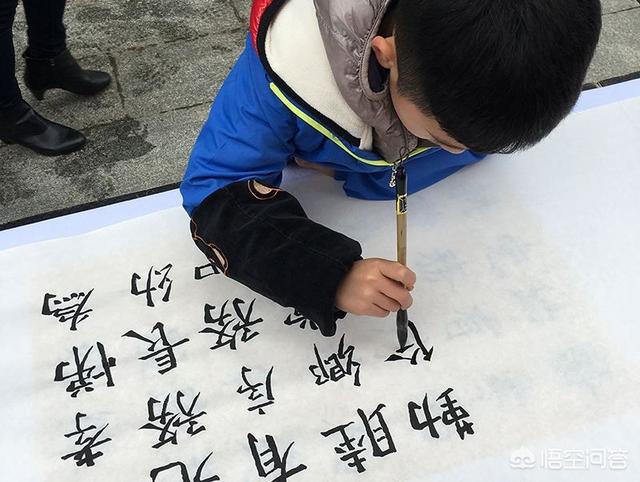 孝悌為
務長幼
有序務
睦鄉
勤
悟空问答